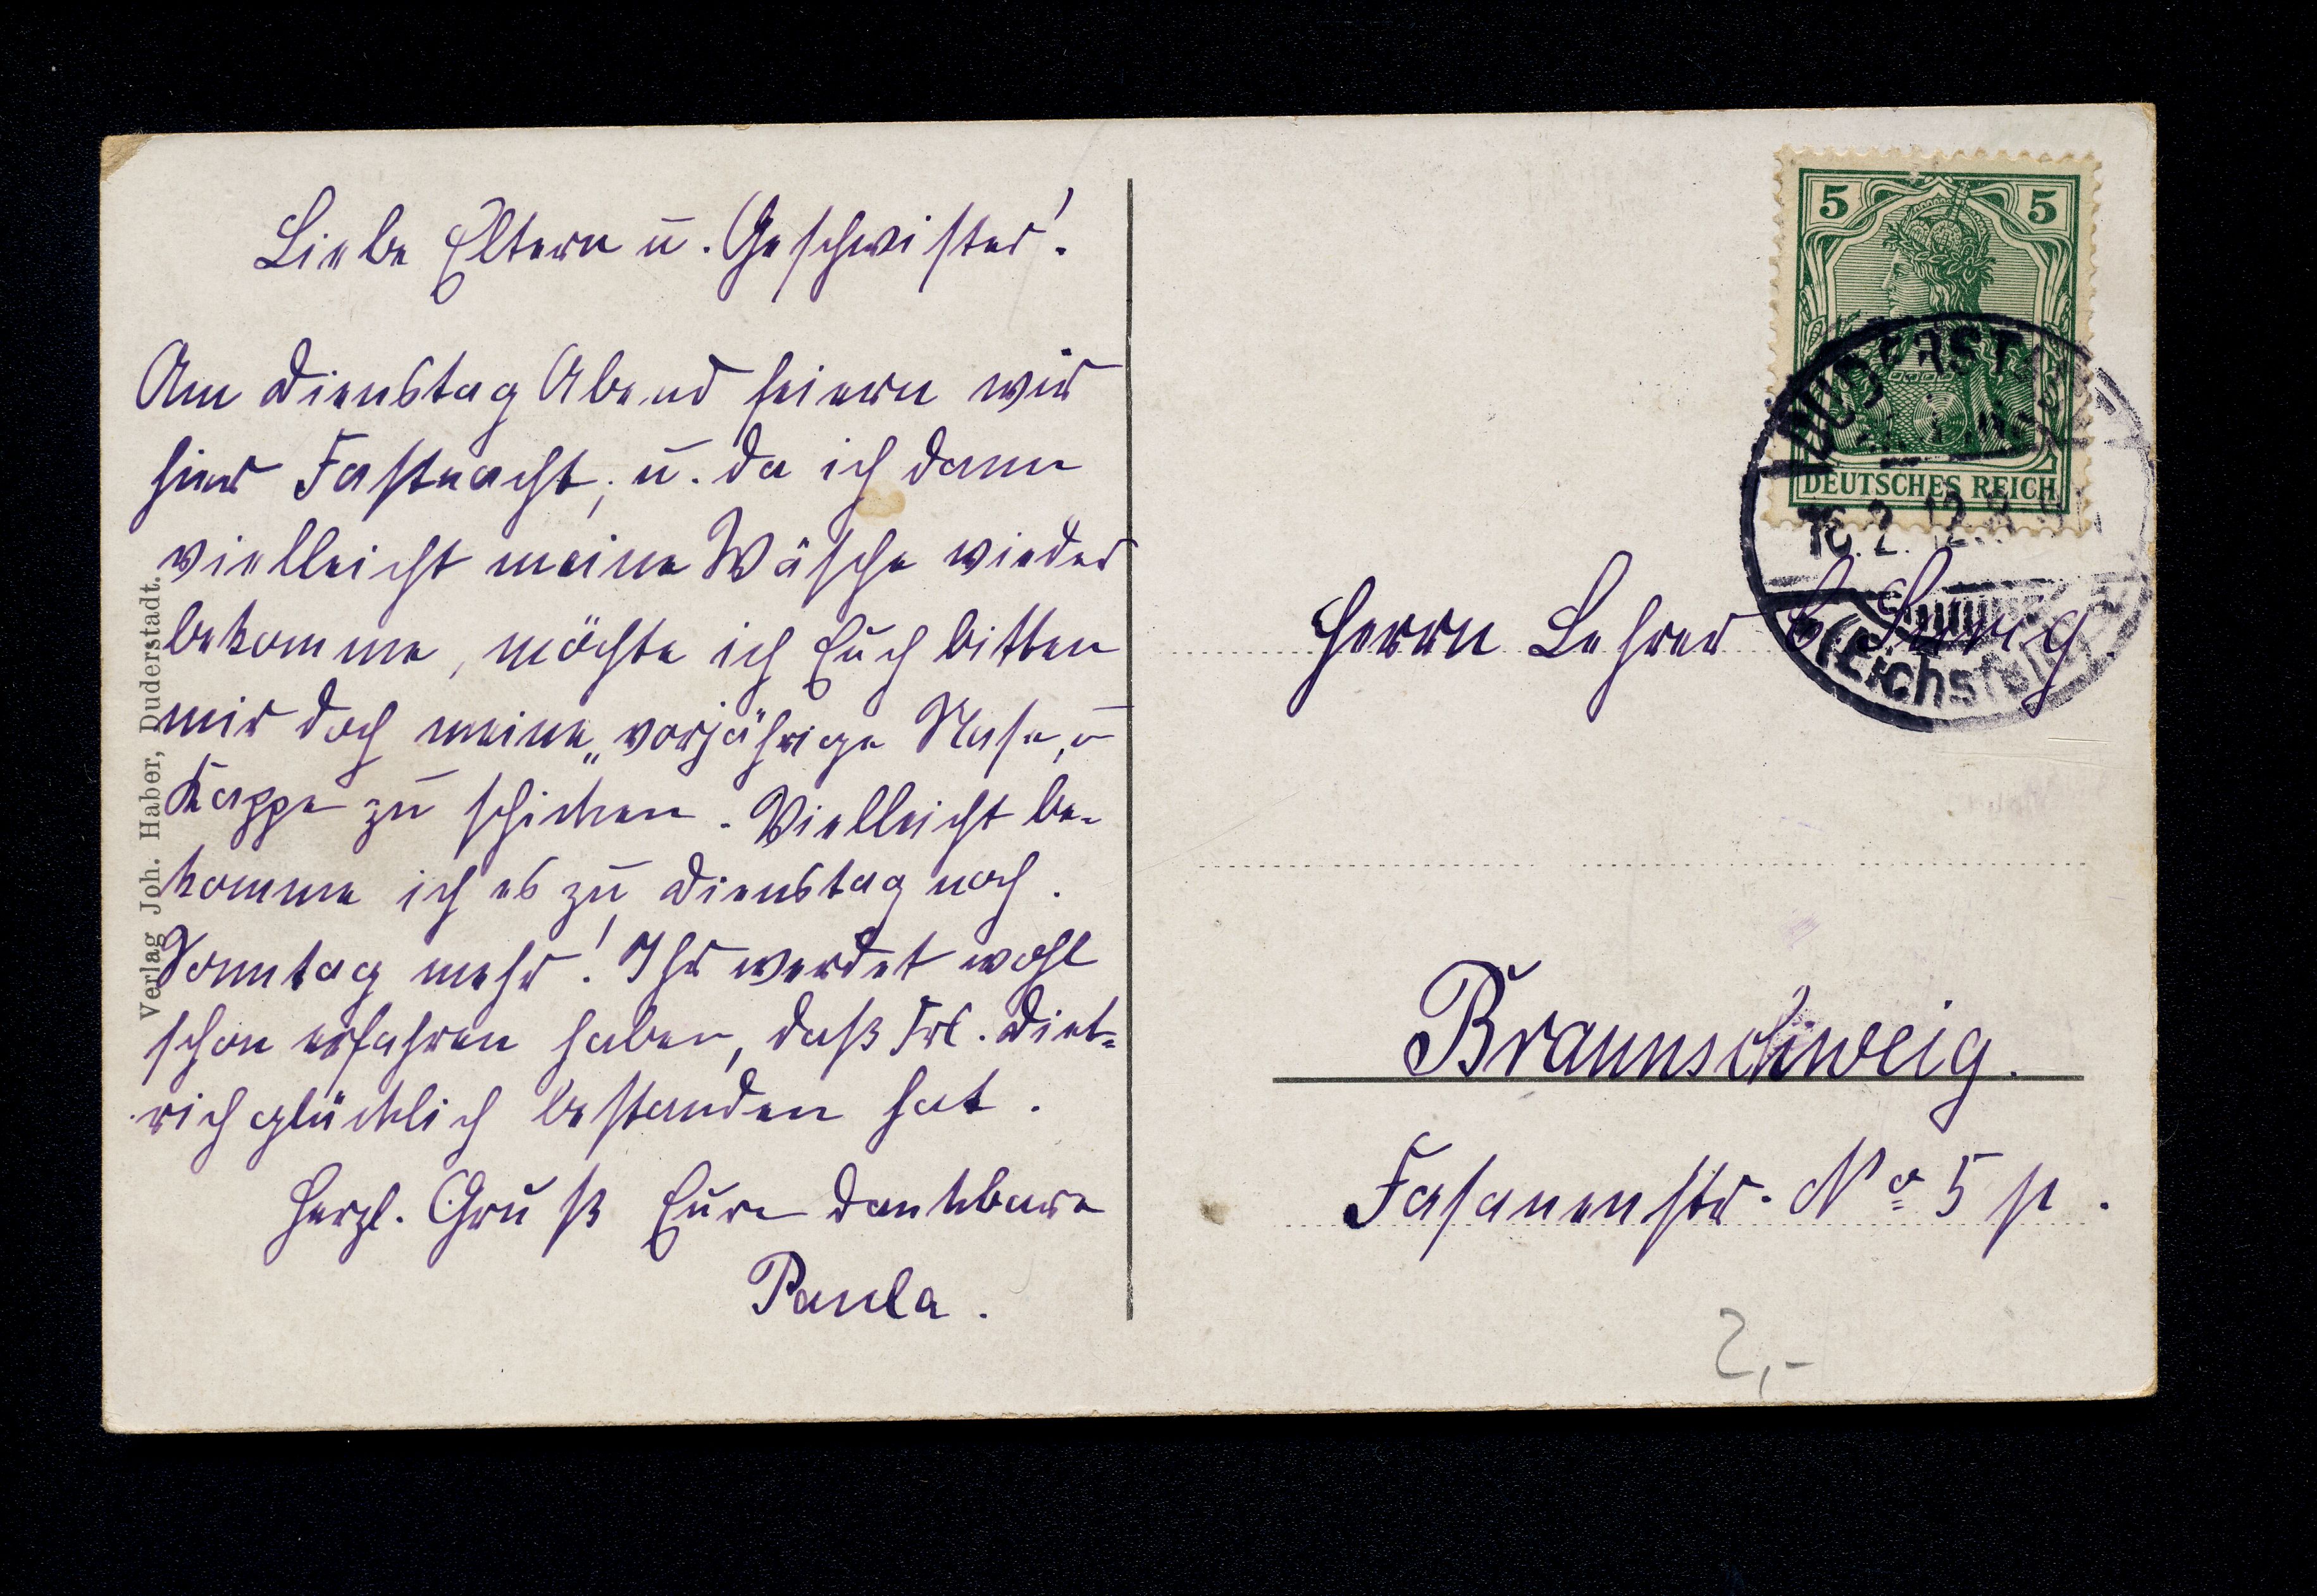 Liebe Eltern u. Geschwister!
Am Dienstag Abend feiern wir
hier Fastnacht, u. da ich dann
vielleicht meine Wäsche wieder
bekomme, möchte ich Euch bitten
mir doch meine „vorjährige Nase, u
Kappe zu schicken. Vielleicht be-
komme ich es zu Dienstag noch.
Sonntag mehr! Ihr werdet wohl
schon erfahren haben, daß Frl. Diet-
rich glücklich bestanden hat.
Herzl. Gruß Eure dankbare
Paula.
Verlag Joh. Haber, Duderstadt.
5 5
DEUTSCHES REICH
DUDERSTADT
16.2.12.
(Eichsfeld)
Herrn Lehrer
Braunschweig.
Fasanenstr. No 5 p.
2,-